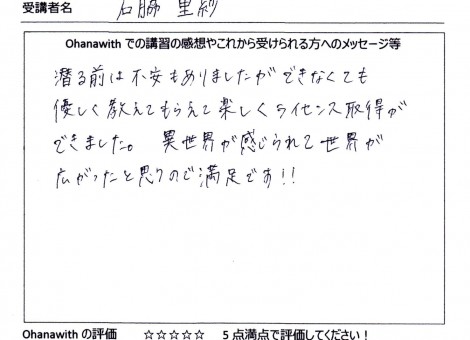 受講者名 石脇 里紗
Ohanawith での講習の感想やこれから受けられる方へのメッセージ等
潜る前は不安もありましたができなくても
優しく教えてもらえて楽しくライセンス取得が
できました。 異世界が感じられて世界が
広がったと思うので満足です!!
Ohanawith の評価 ☆☆☆☆☆ 5点満点で評価してください!